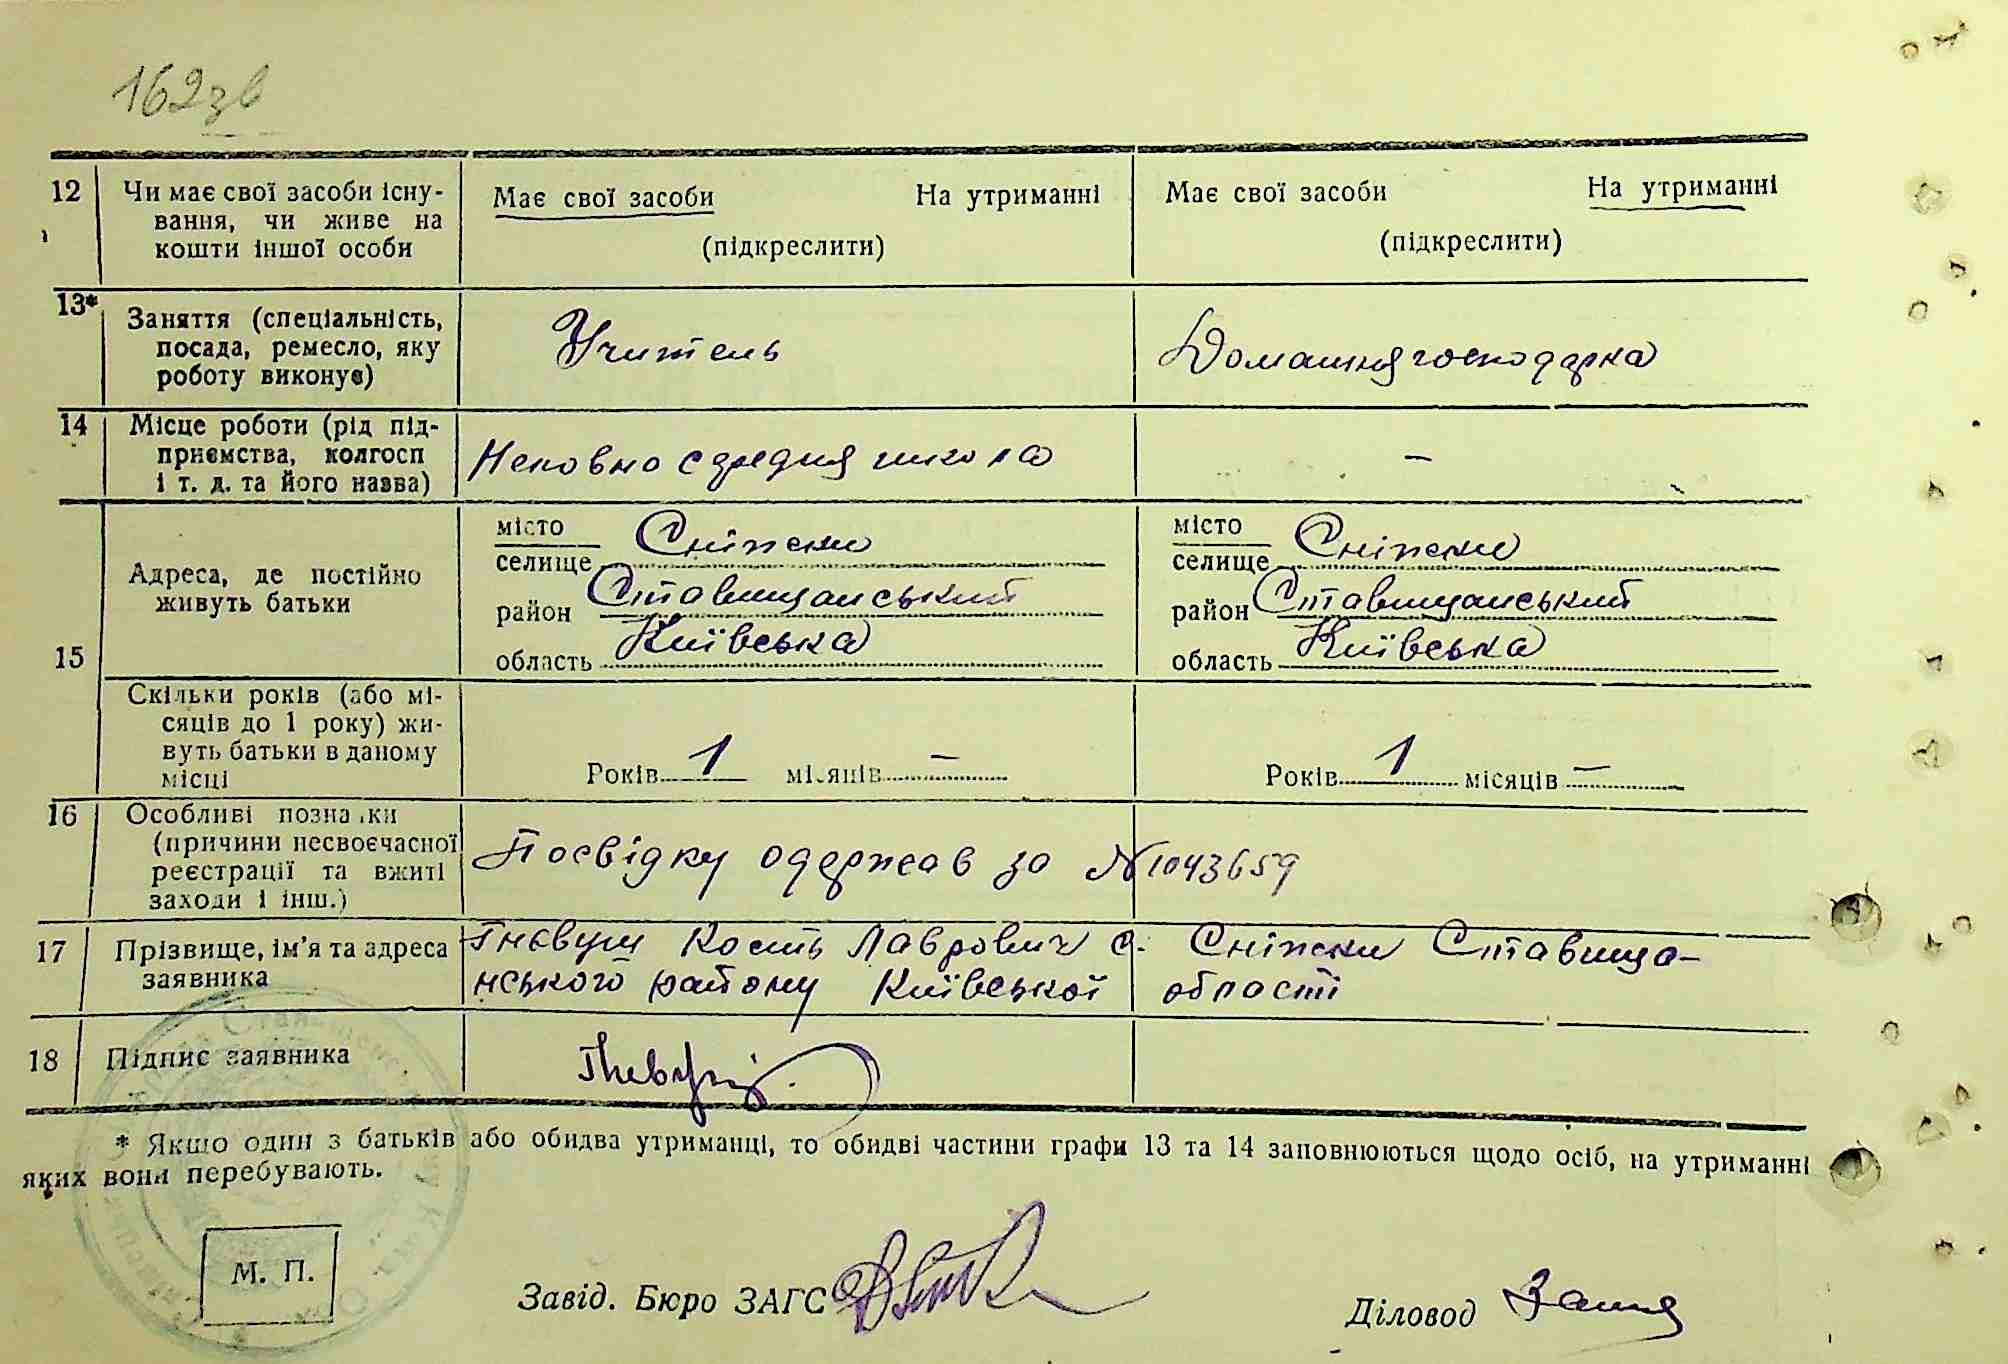 162зв
12 Чи має свої засоби існу- Має свої засоби На утриманні Має свої засоби На утриманні
вання, чи живе на
кошти іншої особи (підкреслити) (підкреслити)
13* Заняття (спеціальність,
посада, ремесло, яку Учитель Домашня господарка
роботу виконує)
14 Місце роботи (рід під-
приємства, колгосп Неповно средня школа –
і т. д. та його назва)
15 Адреса, де постійно
живуть батьки
місто
селище Сніжки
район Ставищанський
область Київська
місто
селище Сніжки
район Ставищанський
область Київська
Скільки років (або мі-
сяців до 1 року) жи-
вуть батьки в даному
місці
Років 1 місяців – Років 1 місяців –
16 Особливі позначки
(причини несвоєчасної
реєстрації та вжиті
заходи і інш.)
Посвідку одержав за №1043659
17 Прізвище, ім'я та адреса
заявника
Гнєвуш Кость Лаврович с. Сніжки Ставища-
нського району Київської області
18 Підпис заявника
* Якщо один з батьків або обидва утриманці, то обидві частини графи 13 та 14 заповнюються щодо осіб, на утриманні
яких вони перебувають.
М. П.
Завід. Бюро ЗАГС
Діловод